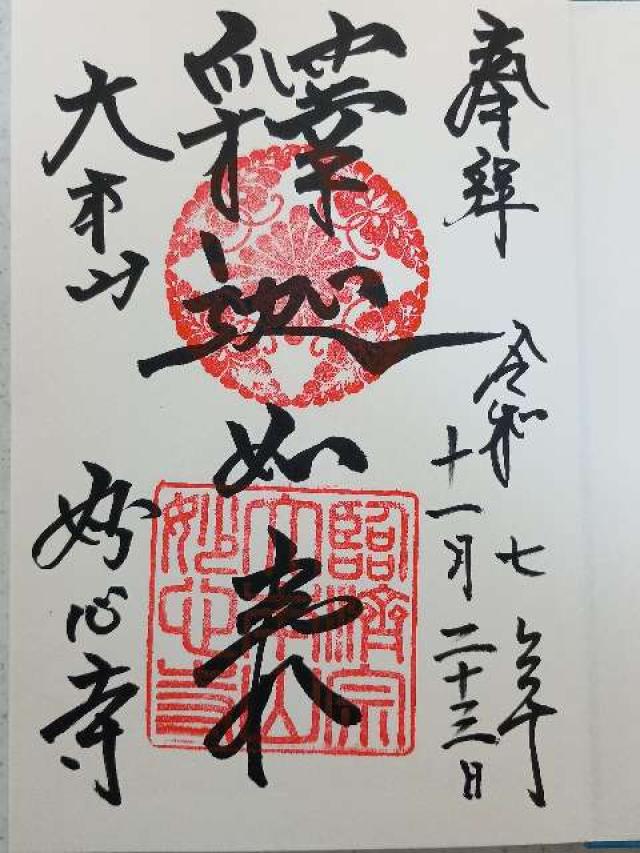 奉拝
令和七年
十一月二十三日
釋迦如来
大本山
妙心寺
臨済宗
大本山
妙心寺